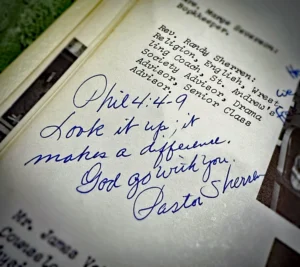 Bookkeeper.
Rev. Randy Sherren:
Religion, English, Wrest
ling Coach, St. Andrew's
Society Advisor, Drama
Advisor, Senior Class
Advisor.
we
Phil 4:4-9
Look it up; it
makes a difference.
God go with you.
Pastor Sherren
Mr. James
Counselo